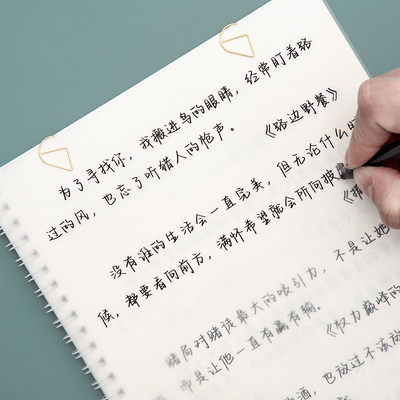 为了寻找你，我搬进鸟的眼睛，经常盯着路
过的风，也忘了听猎人的枪声。 《路边野餐》
没有谁的生活会一直完美，但无论什么时
候，都要看向前方，满怀希望就会所向披
赌局对赌徒最大的吸引力，不是让她
而是让他一直有赢有输。 《权力巅峰的
酒，也放过不该放